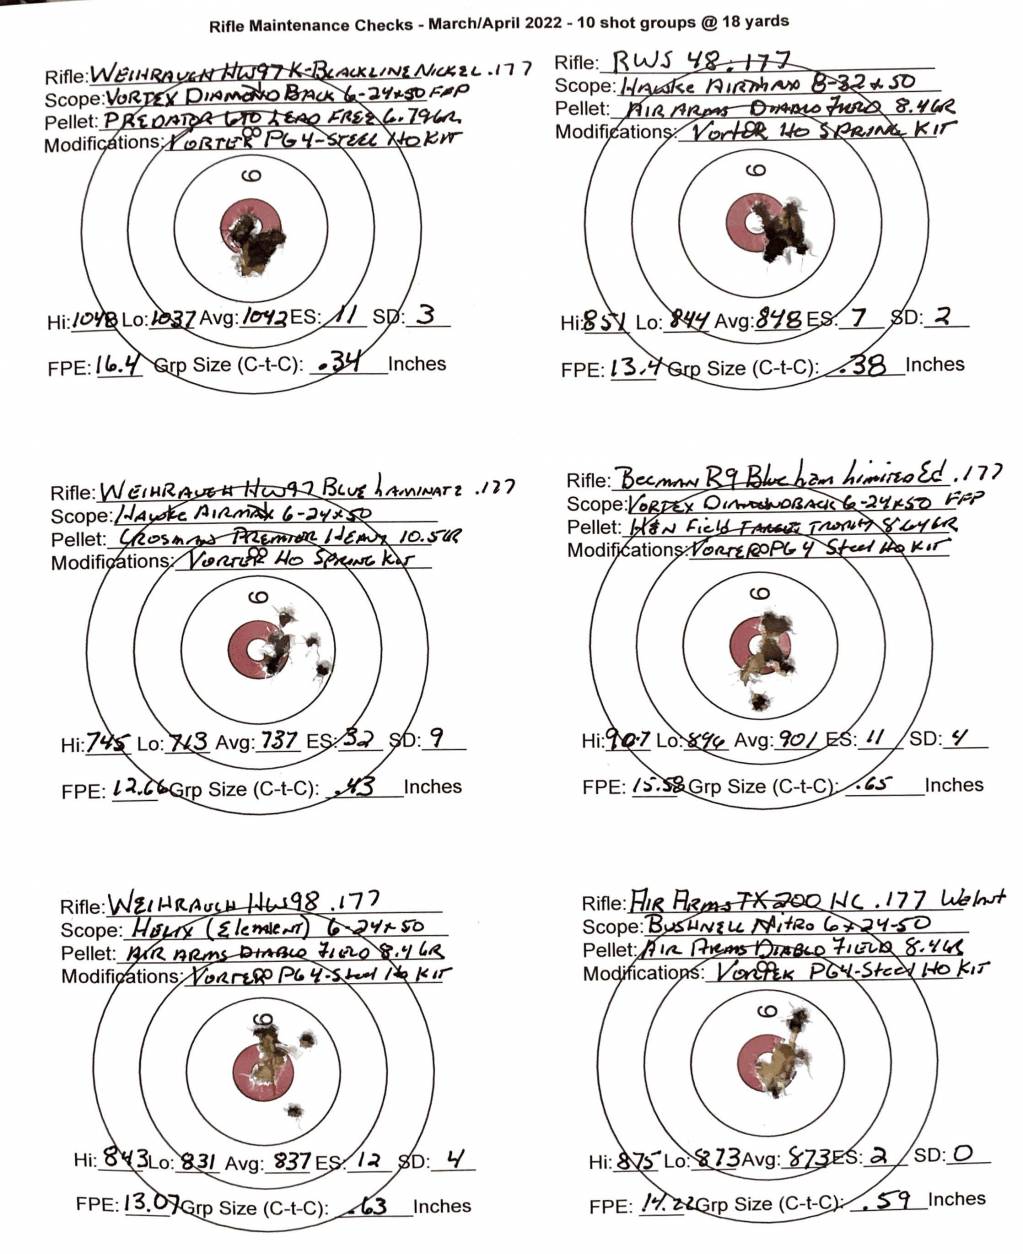 Rifle Maintenance Checks - March/April 2022 - 10 shot groups @ 18 yards
Rifle: WEIHRAUCH HW97K-BLACKLINE NICKEL .177
Scope: VORTEX DIAMOND BACK 6-24x50 FFP
Pellet: PREDATOR GTO LEAD FREE 6.79GR
Modifications: VORTEK PG4-STEEL HO KIT
6
Hi: 1048 Lo: 1037 Avg: 1042 ES: 11 SD: 3
FPE: 16.4 Grp Size (C-t-C): .34 Inches
Rifle: RWS 48 .177
Scope: HAWKE AIRMAX 8-32x50
Pellet: AIR ARMS DIABLO FIELD 8.4GR
Modifications: VORTEK HO SPRING KIT
6
Hi: 851 Lo: 844 Avg: 848 ES: 7 SD: 2
FPE: 13.4 Grp Size (C-t-C): .38 Inches
Rifle: WEIHRAUCH HW97 BLUE LAMINATE .177
Scope: HAWKE AIRMAX 6-24x50
Pellet: CROSMAN PREMIER HEAVY 10.5GR
Modifications: VORTEK HO SPRING KIT
6
Hi: 745 Lo: 713 Avg: 737 ES: 32 SD: 9
FPE: 12.66 Grp Size (C-t-C): .43 Inches
Rifle: Beeman R9 Blue Lam Limited Ed .177
Scope: VORTEX DIAMONDBACK 6-24x50 FFP
Pellet: H&N Field TARGET TROPHY 8.64GR
Modifications: VORTEK PG4 Steel HO KIT
6
Hi: 907 Lo: 896 Avg: 901 ES: 11 SD: 4
FPE: 15.58 Grp Size (C-t-C): .65 Inches
Rifle: WEIHRAUCH HW98 .177
Scope: HELIX (Element) 6-24x50
Pellet: AIR ARMS DIABLO FIELD 8.4GR
Modifications: VORTEK PG4-Steel HO KIT
6
Hi: 843 Lo: 831 Avg: 837 ES: 12 SD: 4
FPE: 13.07 Grp Size (C-t-C): .63 Inches
Rifle: AIR ARMS TX200 HC .177 Walnut
Scope: BUSHNELL NITRO 6x24-50
Pellet: AIR ARMS DIABLO FIELD 8.4GR
Modifications: VORTEK PG4-Steel HO KIT
6
Hi: 875 Lo: 873 Avg: 873 ES: 2 SD: 0
FPE: 14.22 Grp Size (C-t-C): .59 Inches